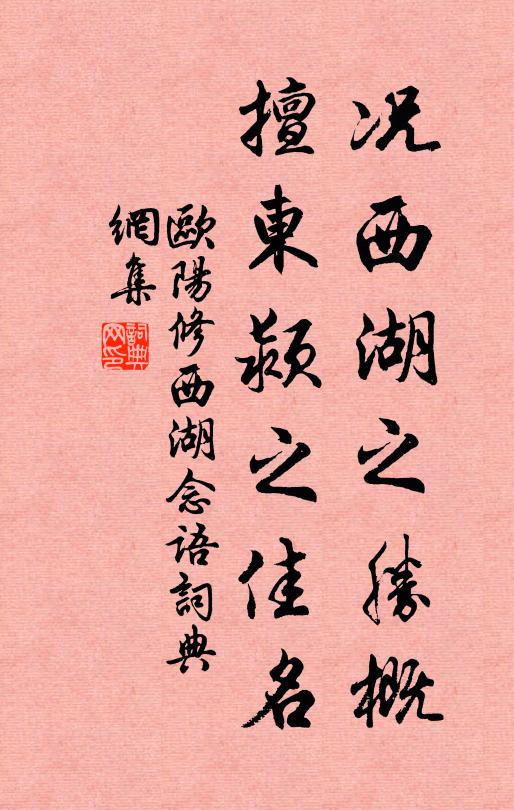 况西湖之勝概
擅東潁之佳名
歐陽修西湖念語詞典
網集
詞典
网印